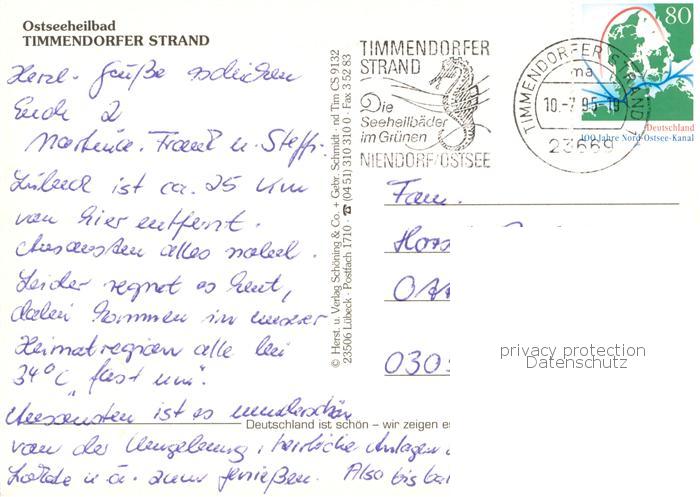 Ostseeheilbad
TIMMENDORFER STRAND
Herzl. Grüße schicken
Euch 2
Martina, Frank u. Steffi.
Lübeck ist ca. 25 km
von hier entfernt.
Ansonsten alles
Leider regnet es heut,
dabei kommen in unserer
Heimatregion alle bei
34°C „fast um".
Ansonsten ist es wunderschön
von der Umgebung, herrliche Anlagen
u.ä. zum genießen. Also bis
Deutschland ist schön – wir zeigen es
© Herst. u. Verlag Schöning & Co. + Gebr. Schmidt · und Tim CS 9132
23506 Lübeck · Postfach 1710 · ☎ (04 51) 310 310 0 · Fax 3 52 83
TIMMENDORFER
STRAND
Die
Seeheilbäder
im Grünen
NIENDORF/OSTSEE
TIMMENDORFER STRAND 1
ma
10.-7.95-19
23669
80
Deutschland
100 Jahre Nord-Ostsee-Kanal
Fam.
Hors
030
privacy protection
Datenschutz